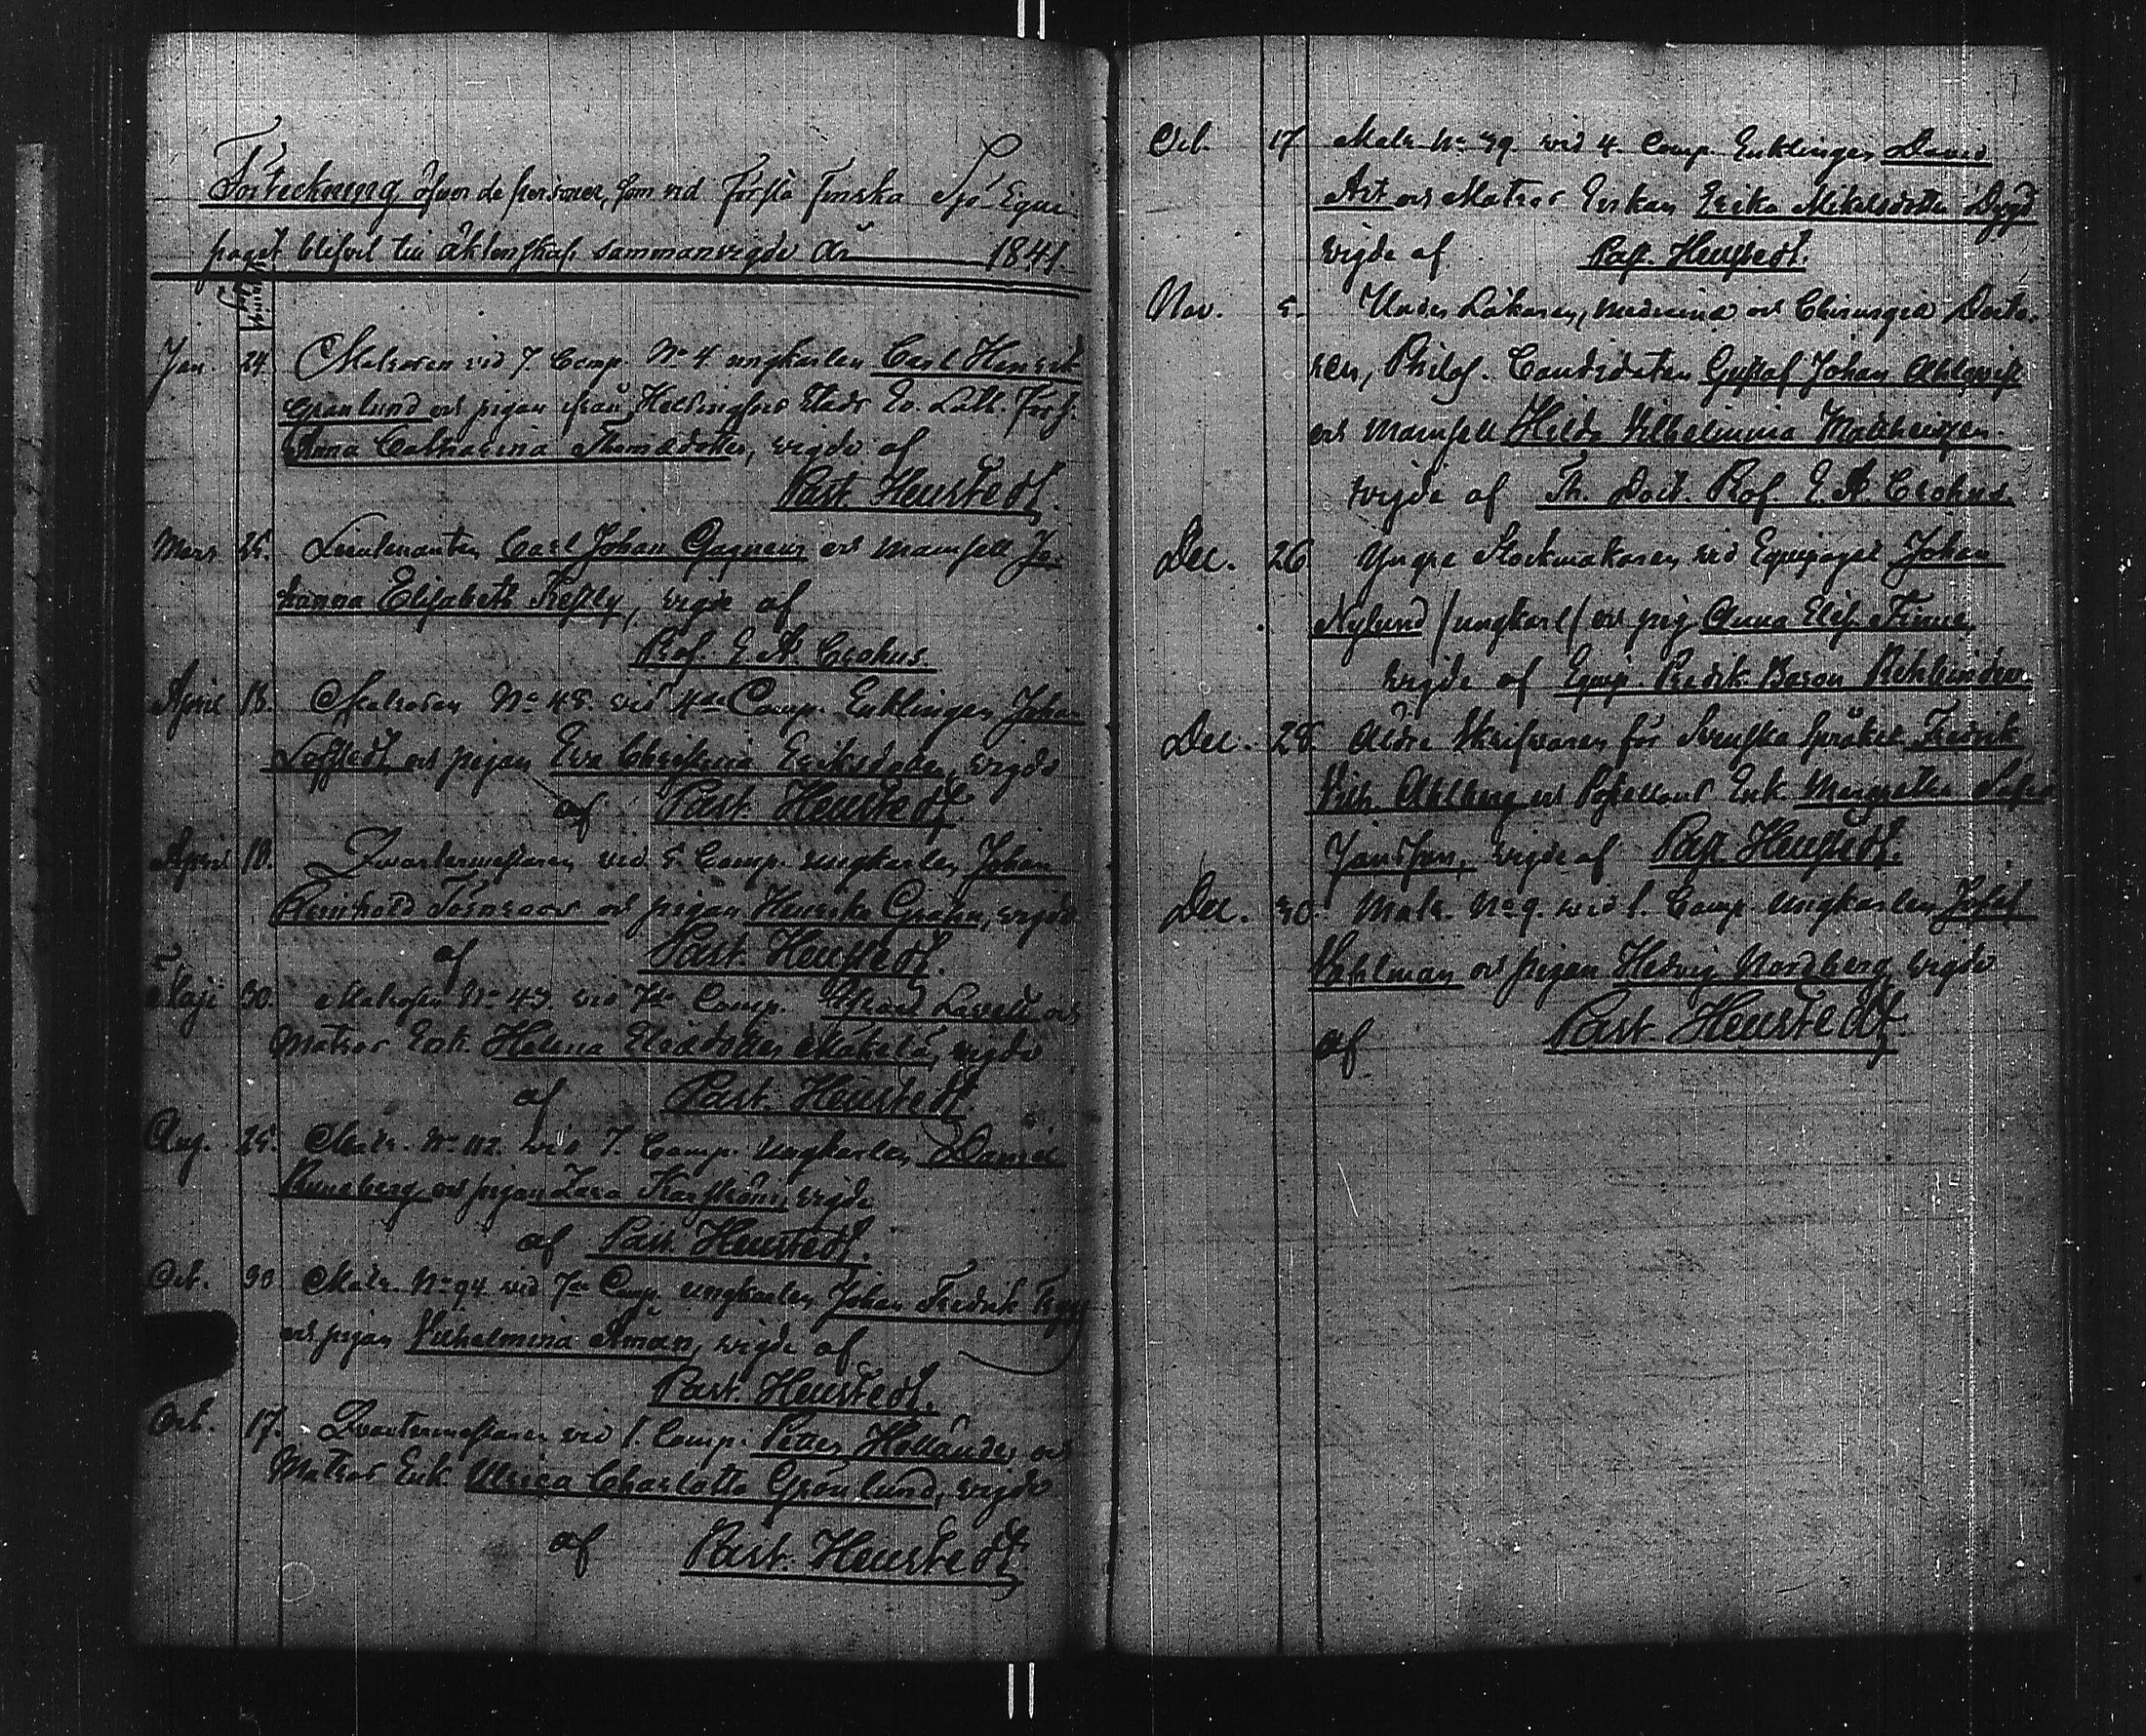 Förteckning öfver de personer, som vid Första Finska Sjö Equi-
paget blifvit till äktenskap sammanvigde År 1841.
Jan. 24. Matrosen vid 7 Comp. No 4 ungkarlen Carl Henrik
Granlund och pigan ifrån Helsingfors Stads Ev. Luth. Förs.
Anna Catharina Thomasdotter, vigde af
Past. Heustedt.
Mars 25. Lieutenanten Carl Johan Gagneur och Mamsell Jo-
hanna Elisabeth Kefly, vigde af
Prof. E A. Crohns.
April 13. Matrosen No 48. vid 4de Comp. Enklingen Johan
Löfstedt och pigan Eva Christina Eriksdotter, vigde
af Past. Heustedt.
April 18. Qvartermästaren vid 5. Comp. ungkarlen Johan
Reinhold Törnroos och pigan Henrika Grahn, vigde
af Past. Heustedt.
Maji 30. Matrosen No 43 vid 7de Comp. och
Matros Enk. Helena Eliædotter Mäkelä, vigde
af Past. Heustedt.
Aug. 25. Matr. No 112. vid 7. Comp. Ungkarlen Daniel
Runeberg och pigan Lovisa vigde
af Past. Heustedt.
Oct. Matr. No 94 vid 7de Comp. ungkarlen Johan Fredrik Trygg
och pigan Vilhelmina Åman, vigde af
Past. Heustedt.
Oct. 17. Qvartermästaren vid 1. Comp. Petter Holländer och
Matros Enk. Ulrica Charlotta Grönlund, vigde
af Past. Heustedt.
Oct. 17 Matr. No 39 vid 4. Comp. Enklingen David
Art och Matros Enkan Erika Mikelsdotter Dygd
vigde af Past. Heustedt.
Nov. 5. Under Läkaren, Medicinæ och Chirurgiæ Docto-
ren, Philos. Candidaten Gustaf Johan Ahlqvist
och Mamsell Hilda Vilhelmina Mathiesen
vigde af Th. Doct. Prof E A Crohns.
Dec. 26 Yngre Stockmakaren vid Equipaget Johan
Nylund / ungkarl / och pig. Anna Elis. Finne
vigde af Equip. Predik. Baron Rehbinder.
Dec. 28 Äldre Skrifvaren för Svenska språket Fredrik
Vilh. Ahlberg och Enk. Margretha Sofia
Jansson, vigde af Past. Heustedt.
Dec. 30. Matr. No 9. vid 1. Comp. Ungkarlen Josef
Vahlman och pigan Hedvig Nordberg vigde
af Past. Heustedt.